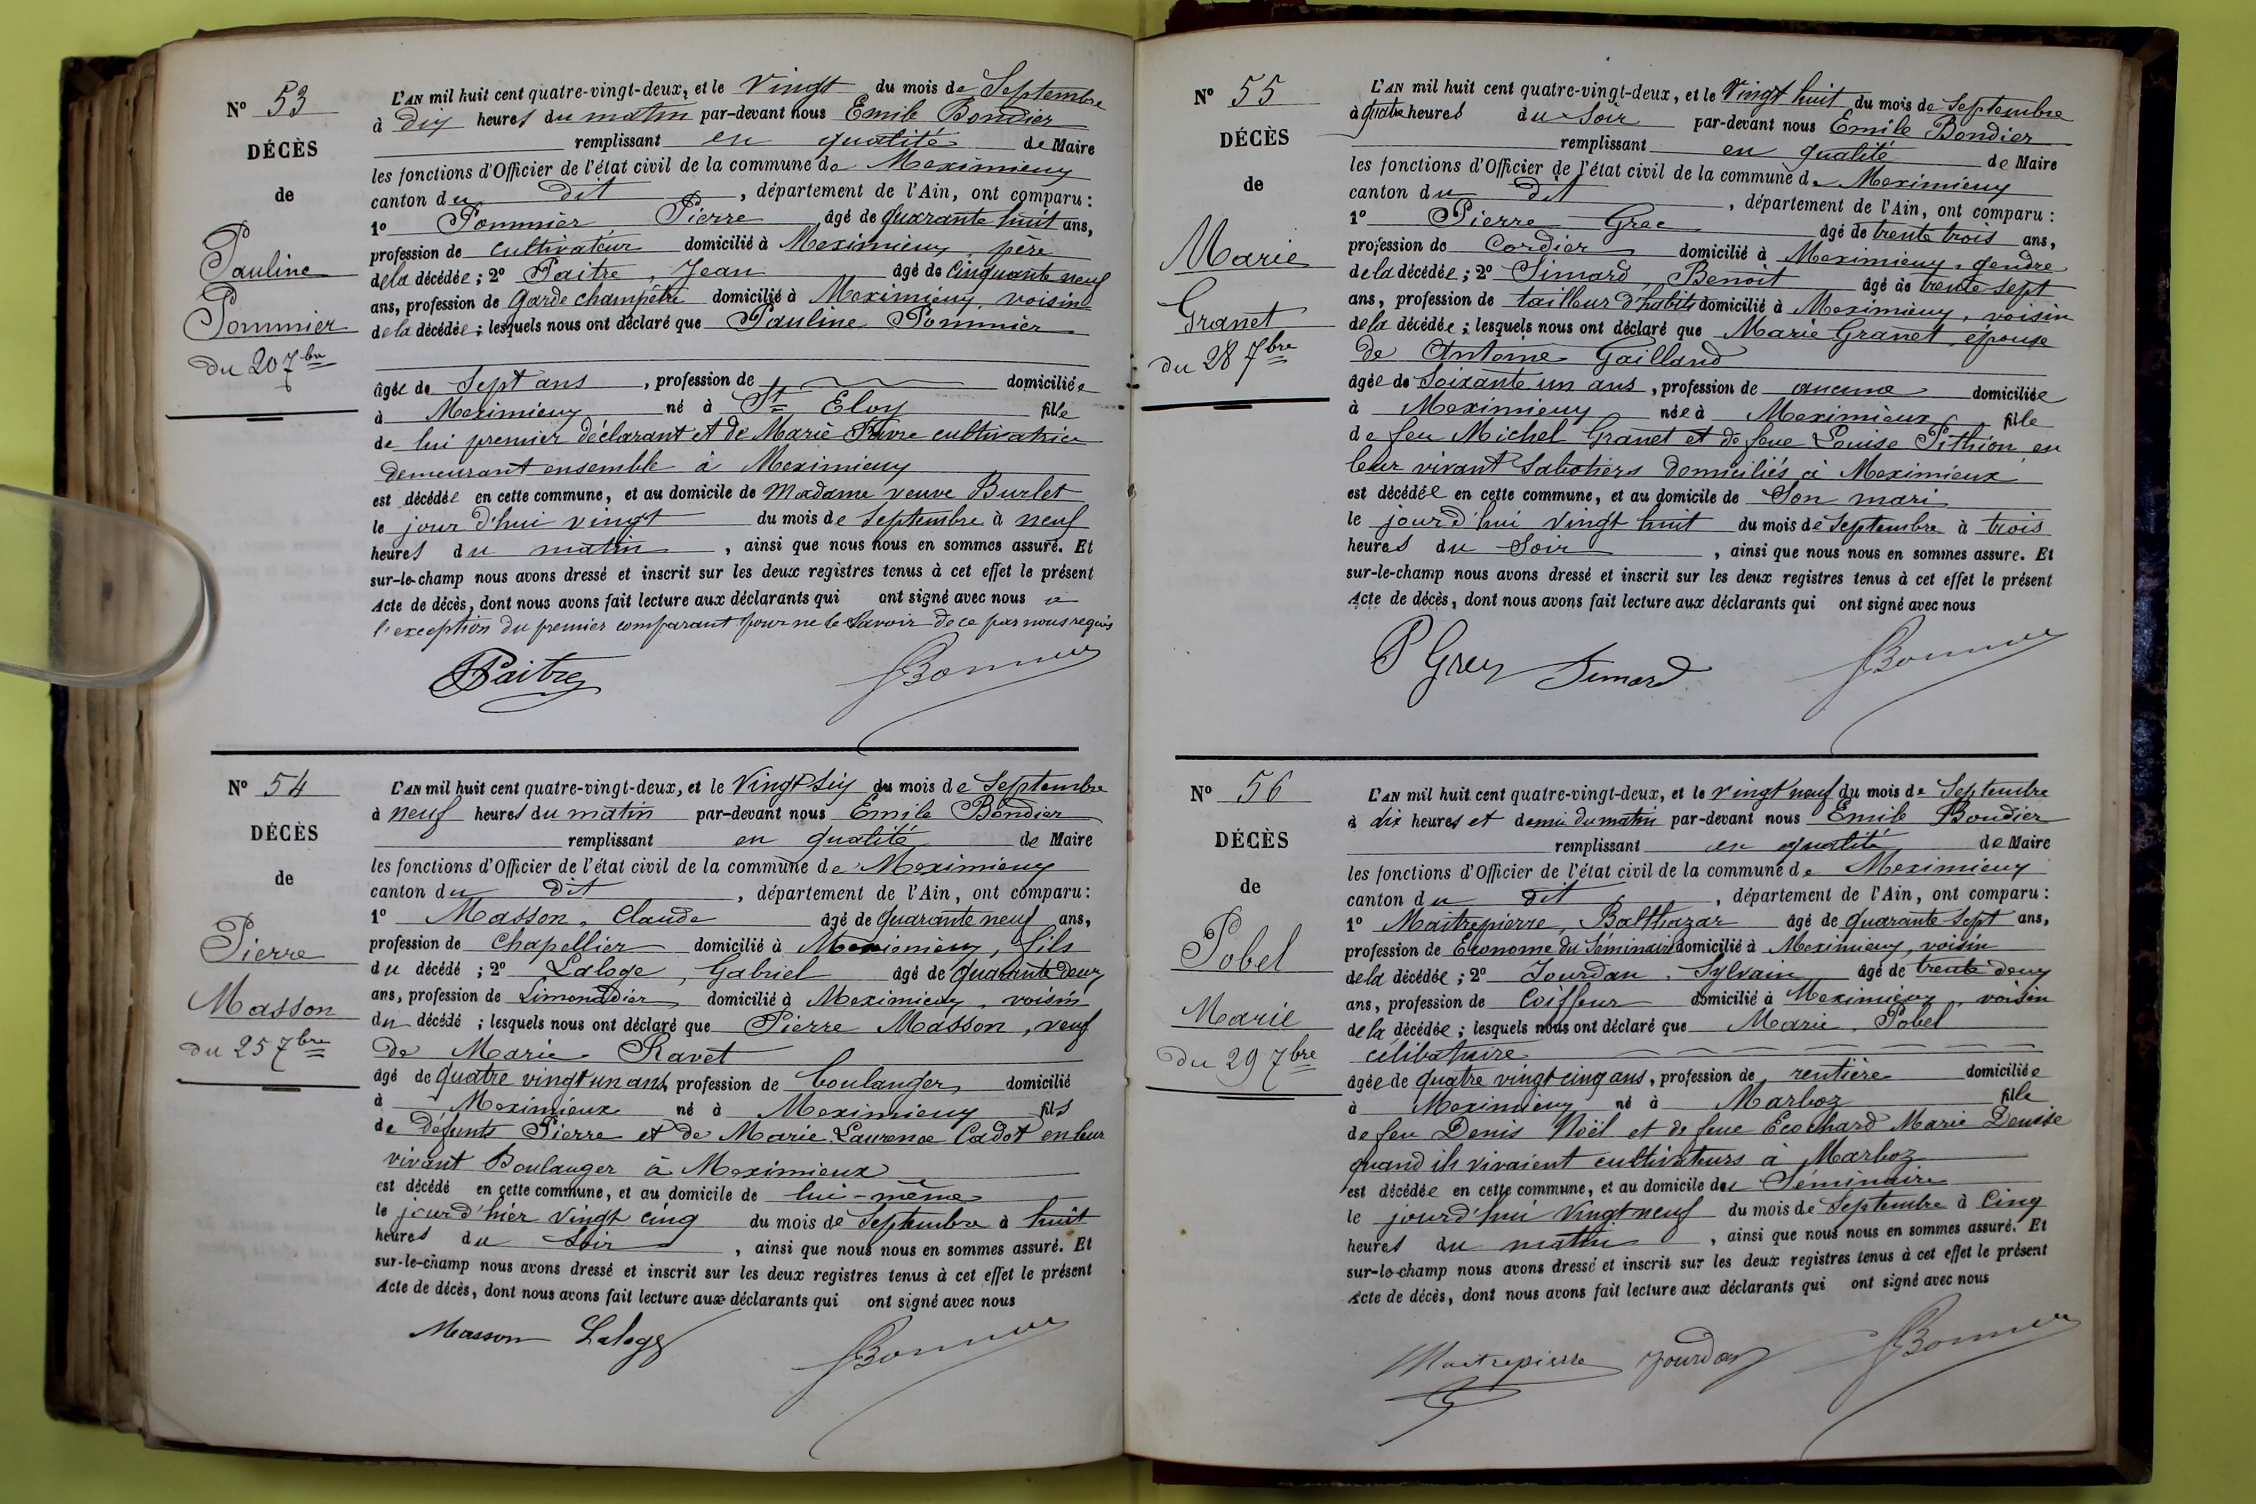 N° 53
DÉCÈS
de
Pauline
Pommier
du 20 7bre
L'AN mil huit cent quatre-vingt-deux, et le Vingt du mois de Septembre
à Dix heures du matin par-devant nous Emile Bondier
remplissant en qualité de Maire
les fonctions d'Officier de l'état civil de la commune de Meximieux
canton du dit, département de l'Ain, ont comparu :
1° Pommier, Pierre âgé de quarante huit ans,
profession de cultivateur domicilié à Meximieux, père
de la décédée ; 2° Paitre, Jean âgé de cinquante neuf
ans, profession de garde champêtre domicilié à Meximieux, voisin
de la décédée ; lesquels nous ont déclaré que Pauline Pommier
âgée de Sept ans, profession de domiciliée
à Meximieux né à St Eloy fille
de lui premier déclarant et de Marie Favre cultivatrice
demeurant ensemble à Meximieux
est décédée en cette commune, et au domicile de Madame veuve Burlet
le jour d'hui vingt du mois de Septembre à neuf
heures du matin, ainsi que nous nous en sommes assuré. Et
sur-le-champ nous avons dressé et inscrit sur les deux registres tenus à cet effet le présent
Acte de décès, dont nous avons fait lecture aux déclarants qui ont signé avec nous à
l'exception du premier comparant pour ne le savoir de ce par nous requis
JPaitre
N° 54
DÉCÈS
de
Pierre
Masson
du 25 7bre
L'AN mil huit cent quatre-vingt-deux, et le Vingt Six du mois de Septembre
à neuf heures du matin par-devant nous Emile Bondier
remplissant en qualité de Maire
les fonctions d'Officier de l'état civil de la commune de Meximieux
canton du dit, département de l'Ain, ont comparu :
1° Masson, Claude âgé de quarante neuf ans,
profession de Chapellier domicilié à Meximieux, fils
du décédé ; 2° Laloge, Gabriel âgé de quarante deux
ans, profession de Limonadier domicilié à Meximieux, voisin
du décédé ; lesquels nous ont déclaré que Pierre Masson, veuf
de Marie Ravet
âgé de quatre vingt un ans, profession de boulanger domicilié
à Meximieux né à Meximieux fils
de défunts Pierre et de Marie Laurence Cadot en leur
vivant Boulanger à Meximieux
est décédé en cette commune, et au domicile de lui-même
le jour d'hier vingt cinq du mois de Septembre à huit
heures du Soir, ainsi que nous nous en sommes assuré. Et
sur-le-champ nous avons dressé et inscrit sur les deux registres tenus à cet effet le présent
Acte de décès, dont nous avons fait lecture aux déclarants qui ont signé avec nous
Masson Laloge
N° 55
DÉCÈS
de
Marie
Granet
du 28 7bre
L'AN mil huit cent quatre-vingt-deux, et le Vingt huit du mois de Septembre
à quatre heures du Soir par-devant nous Emile Bondier
remplissant en qualité de Maire
les fonctions d'Officier de l'état civil de la commune de Meximieux
canton du dit, département de l'Ain, ont comparu :
1° Pierre Grec âgé de trente trois ans,
profession de Cordier domicilié à Meximieux, gendre
de la décédée ; 2° Simard, Benoit âgé de trente sept
ans, profession de tailleur d'habits domicilié à Meximieux, voisin
de la décédée ; lesquels nous ont déclaré que Marie Granet, épouse
de Antoine Gailland
âgée de Soixante un ans, profession de aucune domiciliée
à Meximieux née à Meximieux fille
de feu Michel Granet et de feue Louise Pithion en
leur vivant Sabotiers domiciliés à Meximieux
est décédée en cette commune, et au domicile de Son mari
le jour d'hui Vingt huit du mois de Septembre à trois
heures du Soir, ainsi que nous nous en sommes assuré. Et
sur-le-champ nous avons dressé et inscrit sur les deux registres tenus à cet effet le présent
Acte de décès, dont nous avons fait lecture aux déclarants qui ont signé avec nous
Simard
N° 56
DÉCÈS
de
Pobel
Marie
du 29 7bre
L'AN mil huit cent quatre-vingt-deux, et le vingt neuf du mois de Septembre
à dix heures et demie du matin par-devant nous Emile Bondier
remplissant en qualité de Maire
les fonctions d'Officier de l'état civil de la commune de Meximieux
canton du dit, département de l'Ain, ont comparu :
1° Maitrepierre, Balthazar âgé de quarante Sept ans,
profession de Econome du Séminaire domicilié à Meximieux, voisin
de la décédée ; 2° Jourdan, Sylvain âgé de trente deux
ans, profession de Coiffeur domicilié à Meximieux, voisin
de la décédée ; lesquels nous ont déclaré que Marie, Pobel
célibataire
âgée de quatre vingt cinq ans, profession de rentière domiciliée
à Meximieux né à Marboz fille
de feu Denis Noël et de feue Ecochard Marie Denise
quand ils vivaient cultivateurs à Marboz
est décédée en cette commune, et au domicile du Séminaire
le jour d'hui Vingt neuf du mois de Septembre à Cinq
heures du matin, ainsi que nous nous en sommes assuré. Et
sur-le-champ nous avons dressé et inscrit sur les deux registres tenus à cet effet le présent
Acte de décès, dont nous avons fait lecture aux déclarants qui ont signé avec nous
Maitrepierre Jourdan